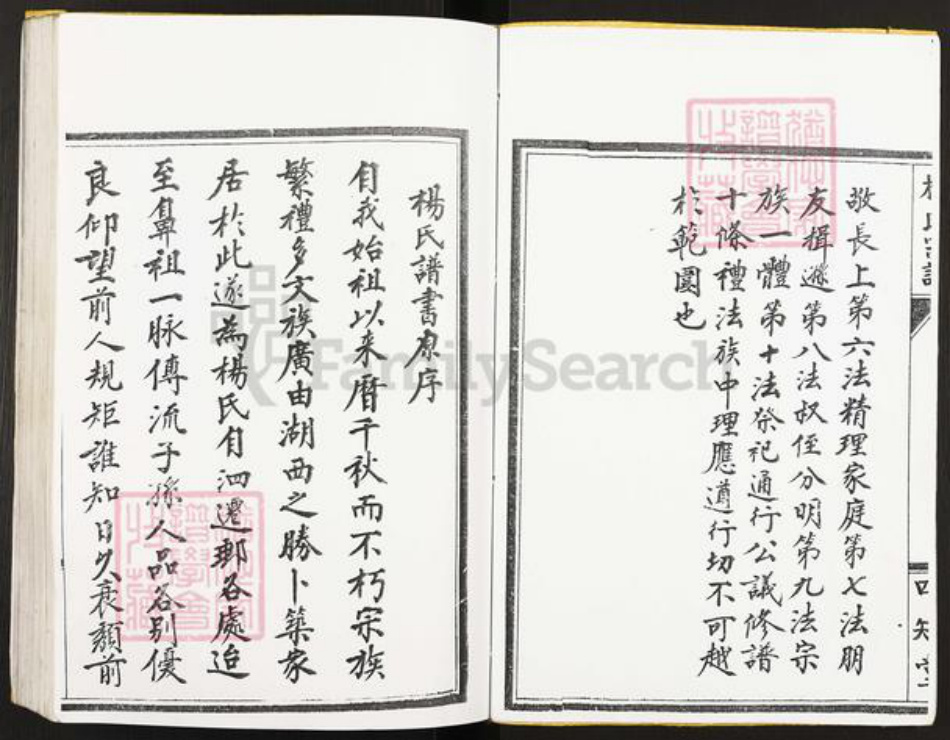 敬長上第六法精理家庭第七法朋
友揖遜第八法叔侄分明第九法宗
族一體第十法祭祀通行公議修譜
十條禮法族中理應遵行切不可越
於範圍也
楊氏譜書原序
自我始祖以来曆千秋而不朽宗族
繁禮多文族廣由湖西之勝卜築家
居於此遂為楊氏自泗遷邺各處迨
至鼻祖一脉傳流子孫人品各別優
良仰望前人規矩誰知日久衰頹前
FamilySearch